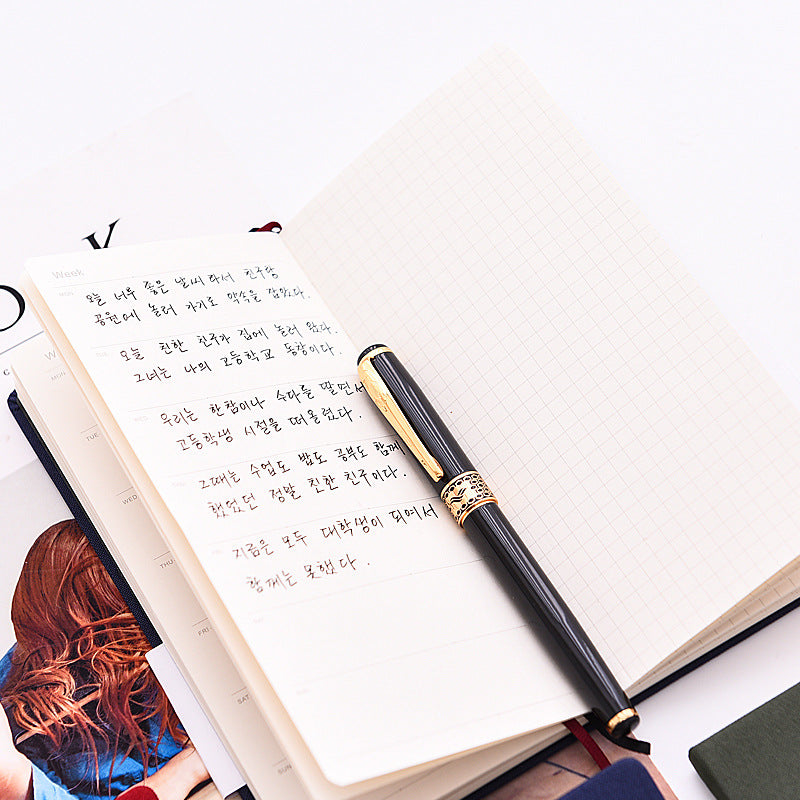 Week
MON
오늘 너무 좋은 날씨라서 친구랑
공원에 놀러 가기로 약속을 잡았다.
오늘 친한 친구가 집에 놀러 왔다.
그녀는 나의 고등학교 동창이다.
WED
우리는 한참이나 수다를 떨면서
고등학생 시절을 떠올렸다.
THU
그때는 수업도 밥도 공부도 함께
했었던 정말 친한 친구이다.
지금은 모두 대학생이 되어서
함께는 못했다.
SAT
W
MON
TUE
WED
THU
FRI
SAT
SUN
K
O